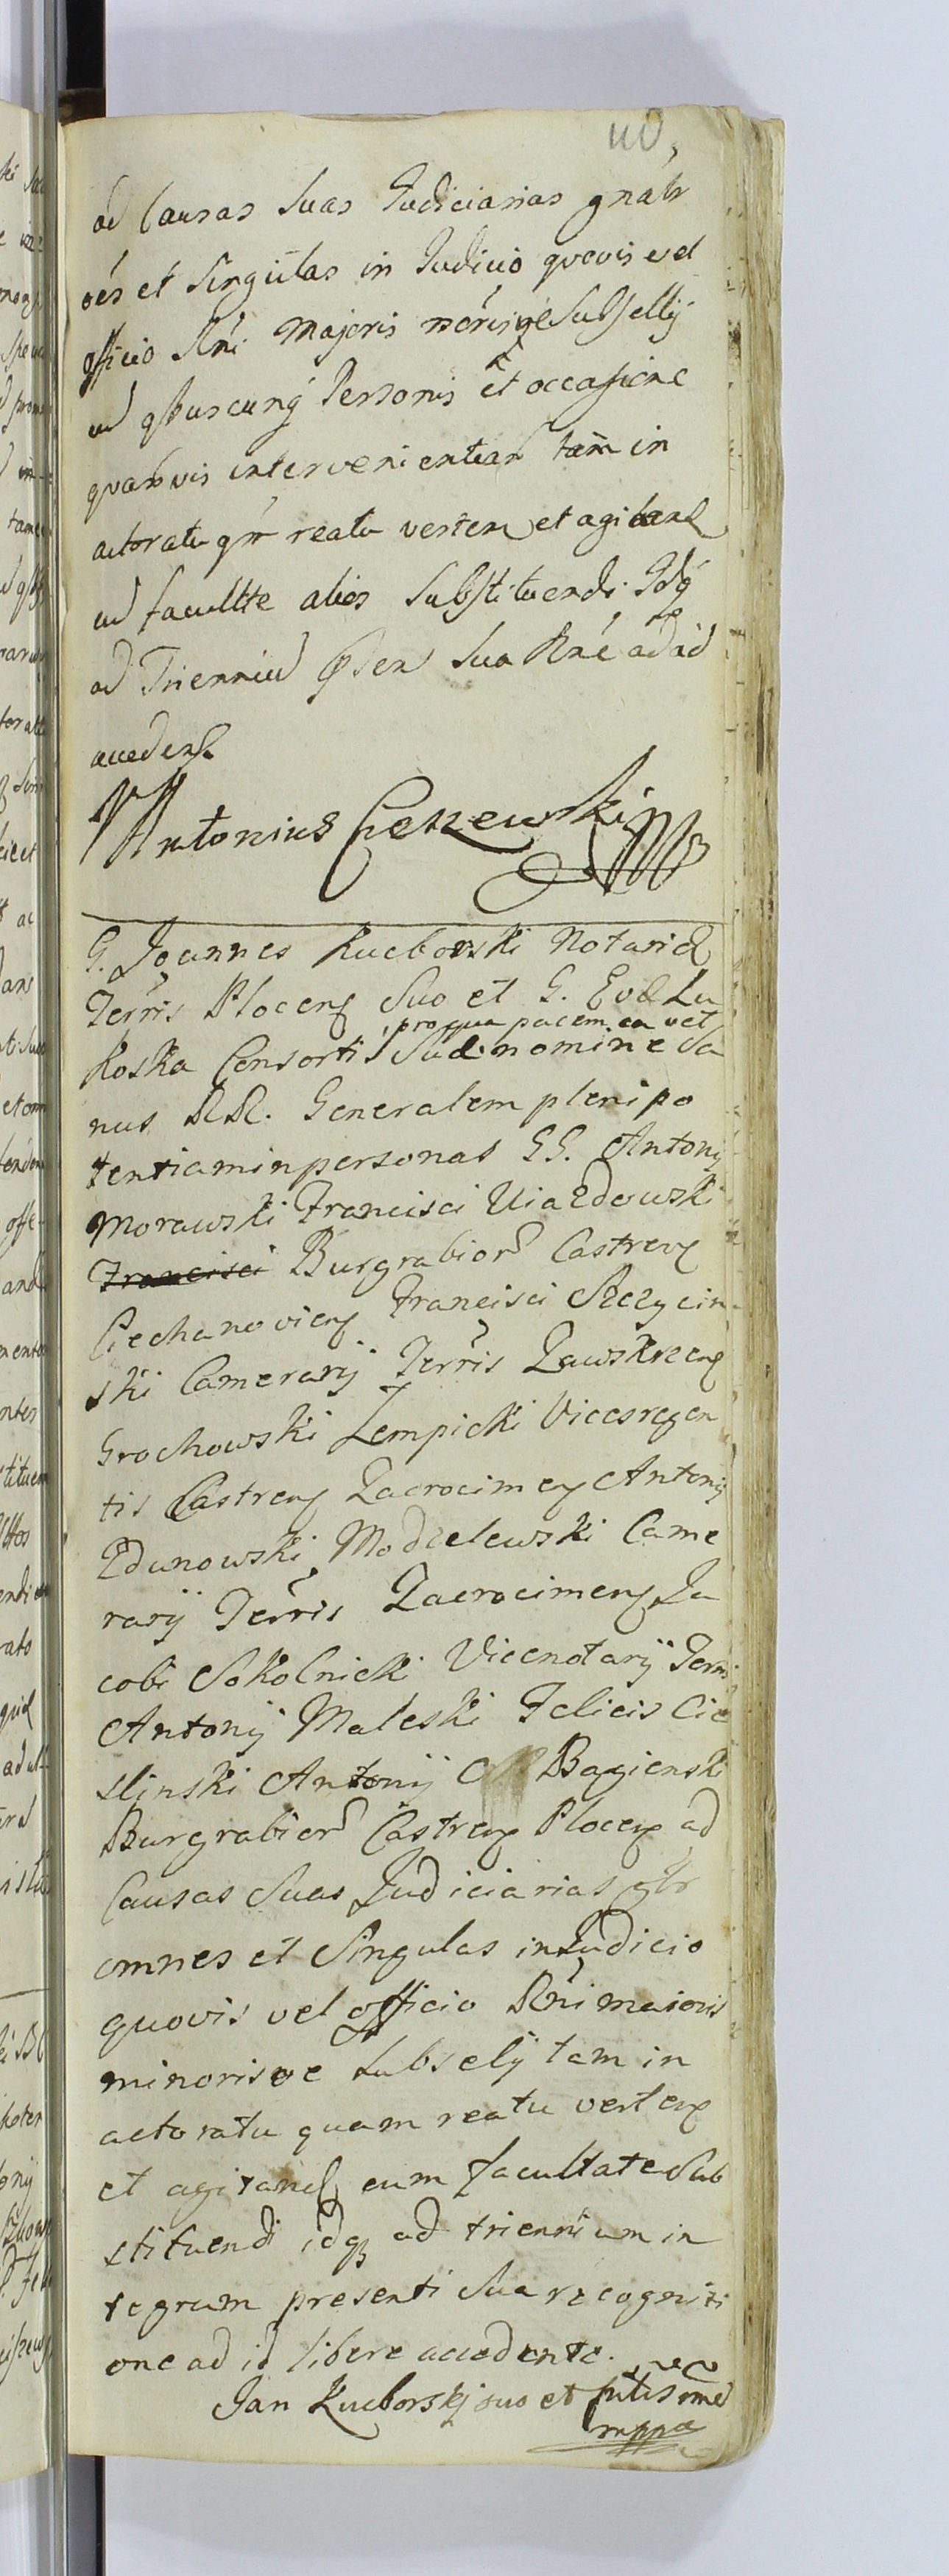 110,
ad Causas Suas Judiciarias gnalr
oés et Singulas in Judicio quovis vel
officio Rni Majoris minórisve Subsellij
cū qbuscunq Personis et occasione
quabvis intervenientiarū tam in
actoratu qm reatu verten et agitand
cū facultte alios Substituendi Idq
ad Triennium pnsen Sua Rne ad id
acceden.
Antonius Ciszewski mp
G. Joannes Kucborski Notari9
Terris Plocen Suo et G. Evae Lu
pro qua pacem ea vet
koska Consortis Suae nomine Sa
nus RR. Generalem plenipo
tentiam in personas GG. Antonij
Morawski Francisci Uiazdowski
Francisci Burgrabior Castren
Ciechanovien Francisci Szczycin
ski Camerarij Terris Zawskrzen
Grochowski Lempicki Vicesregen
tis Castren Zacrocimen Antonij
Zdunowski Modzelewski Came
rarij Terris Zacrocimen Ja
cobi Sokolnicki Vicenotarij Terris
Antonij Maleski Felicis Cie
slinski Antonij Bagienski
Burgrabior Castren Plocen ad
Causas Suas Judiciarias glr
omnes et Singulas in Judicio
quovis vel officio Rni maioris
minorisve subselij tam in
actoratu quam reatu verten
et agitand cum facultate Sub
stituendi idq ad triennium in
tegrum presenti Sua recogniti
one ad id libere accedente.
Jan Kucborskj suo et
mppa